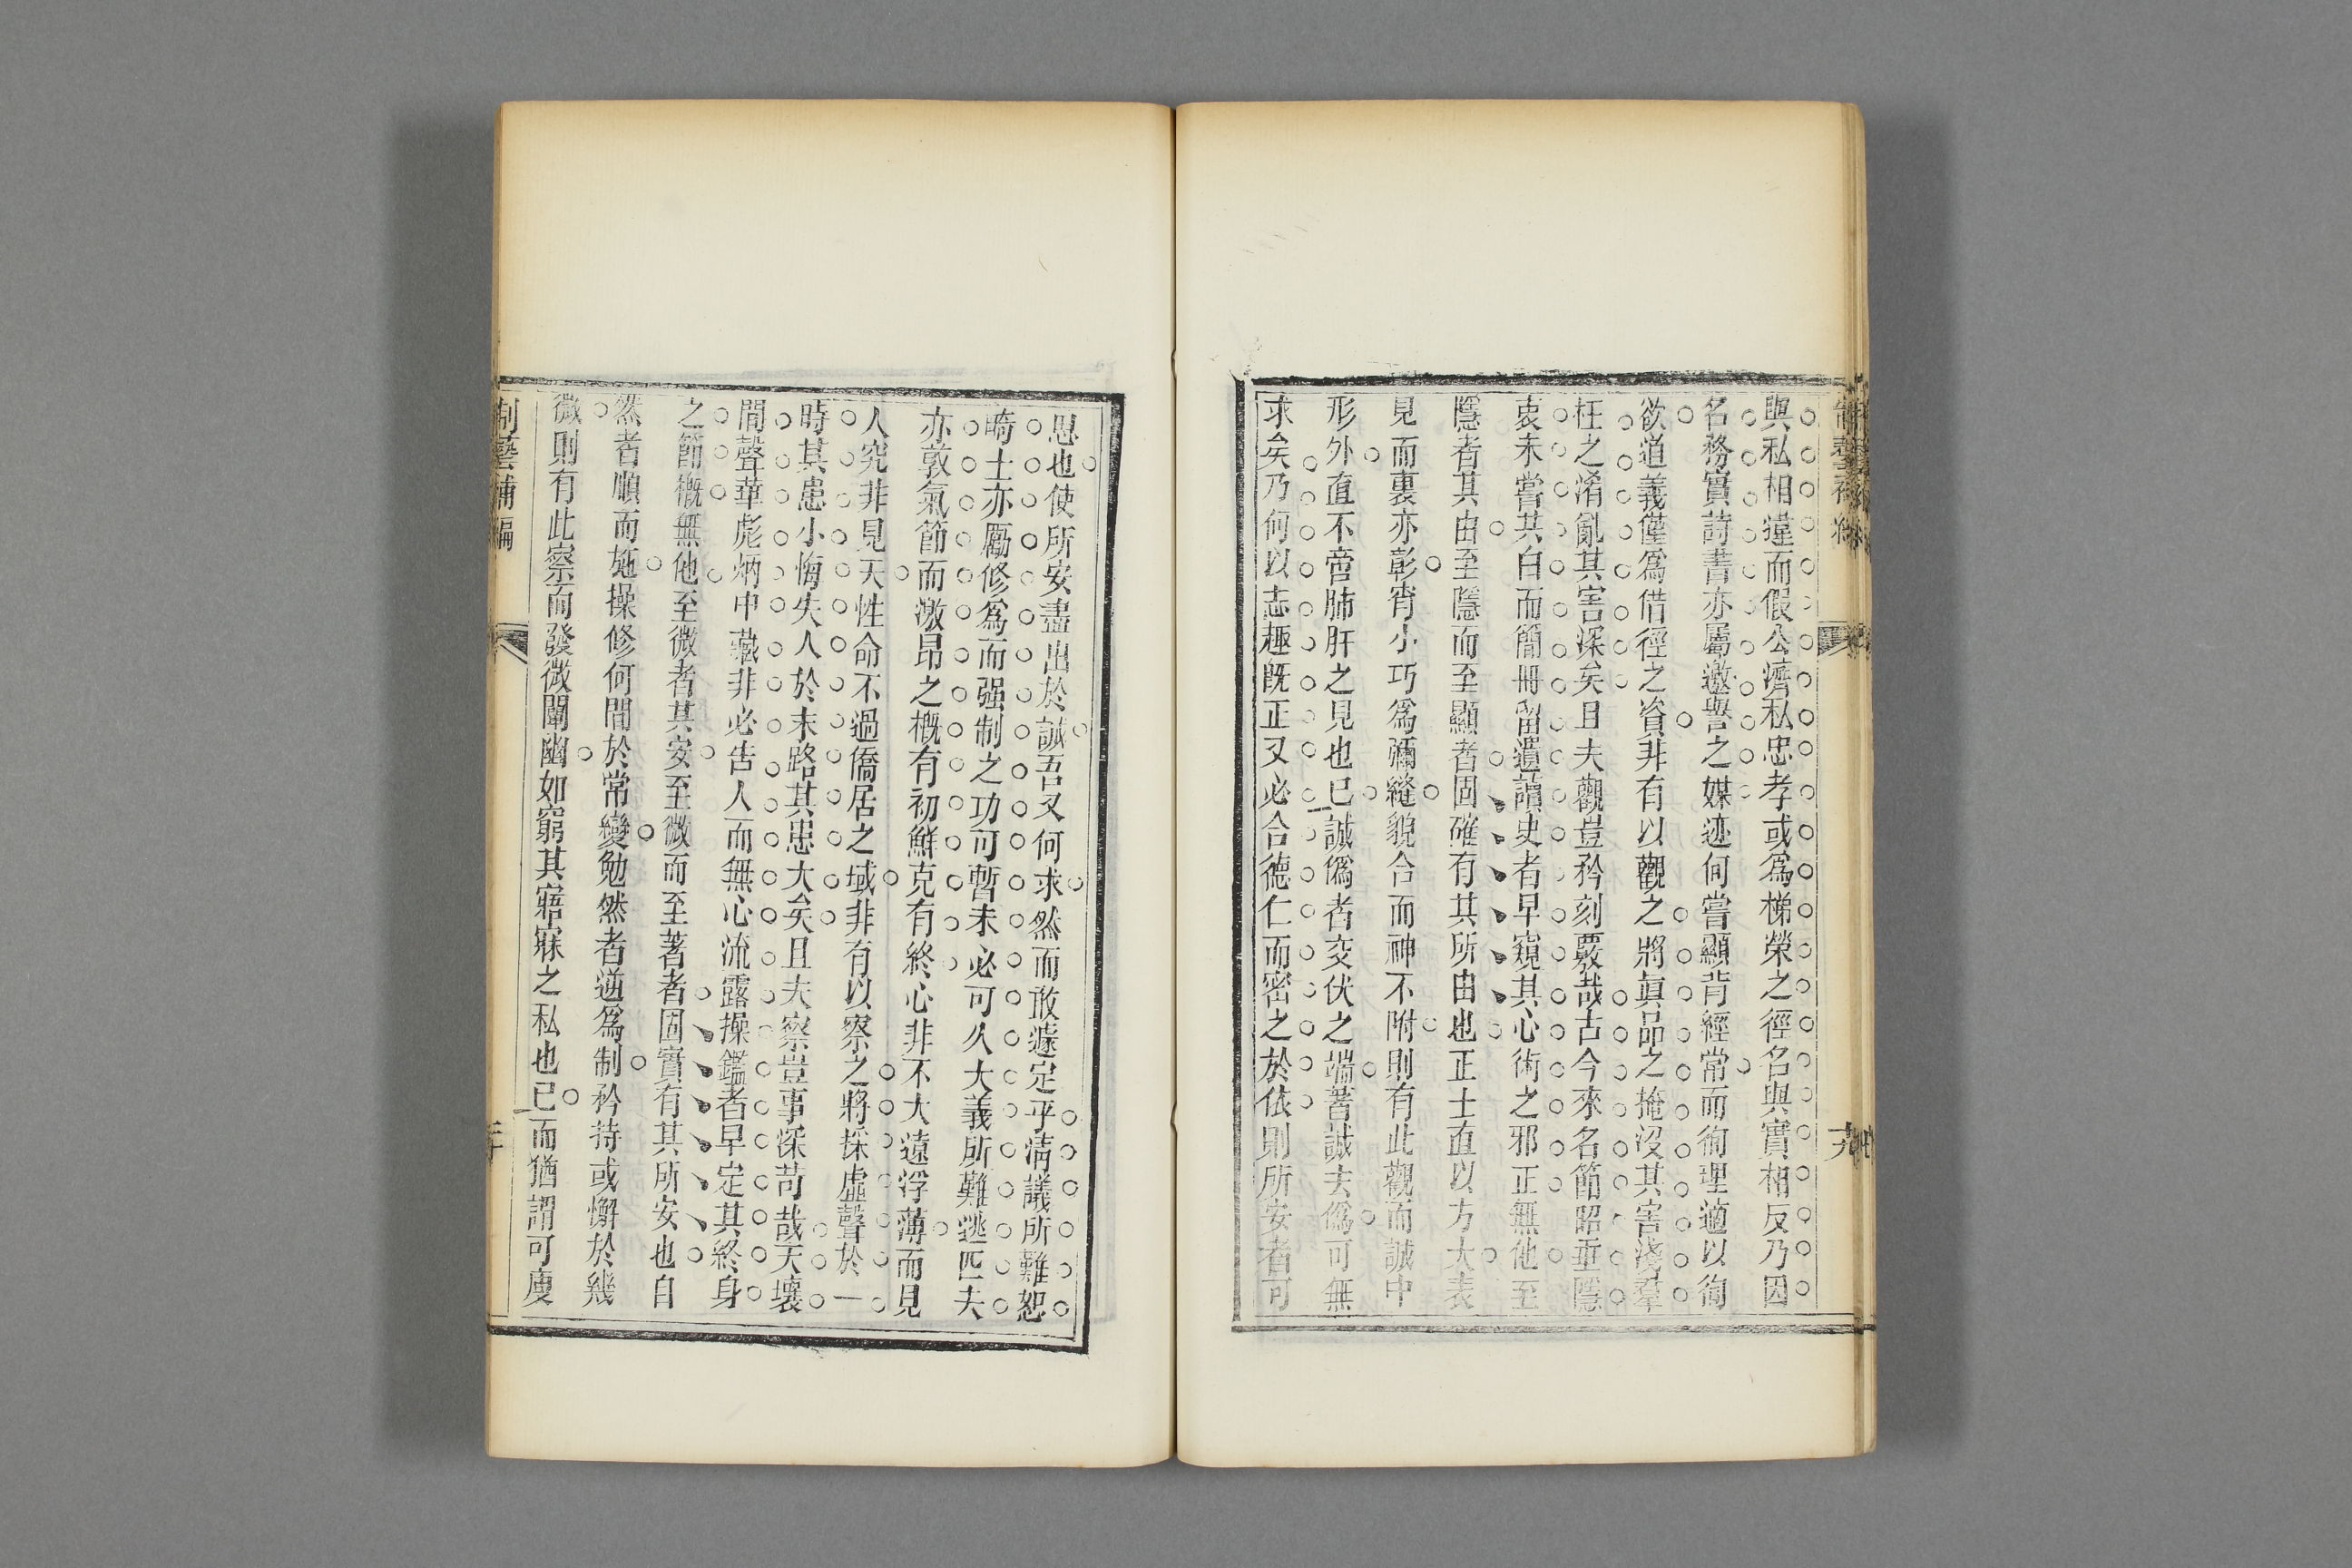 與私相違而假公濟私忠孝或爲梯榮之徑名與實相反乃因
名務實詩書亦屬邀譽之媒迹何嘗顯背經常而徇理適以徇
欲道義僅爲借徑之資非有以觀之將眞品之掩沒其害淺羣
枉之淆亂其害深矣且夫觀豈矜刻覈哉古今來名節昭垂隱
衷未嘗共白而簡冊留遺讀史者早窺其心術之邪正無他至
隱者其由至隱而至顯者固確有其所由也正士直以方大表
見而裏亦彰宵小巧爲彌縫貌合而神不附則有此觀而誠中
形外直不啻肺肝之見也已誠僞者交伏之端著誠去僞可無
求矣乃何以志趣旣正又必合德仁而密之於依則所安者可
思也使所安盡出於誠吾又何求然而敢遽定乎淸議所難恕
畸士亦厲修爲而强制之功可暫未必可久大義所難逃匹夫
亦敦氣節而激昂之概有初鮮克有終心非不大遠浮薄而見
人究非見天性命不過僑居之域非有以察之將採虛聲於一
時其患小悔失人於末路其患大矣且夫察豈事深苛哉天壤
間聲華彪炳中藏非必告人而無心流露操鑑者早定其終身
之節概無他至微者其安至微而至著者固實有其所安也自
然者順而施操修何間於常變勉然者逆爲制矜持或懈於幾
微則有此察而發微闡幽如窮其寤寐之私也已而猶謂可廋
制藝補編